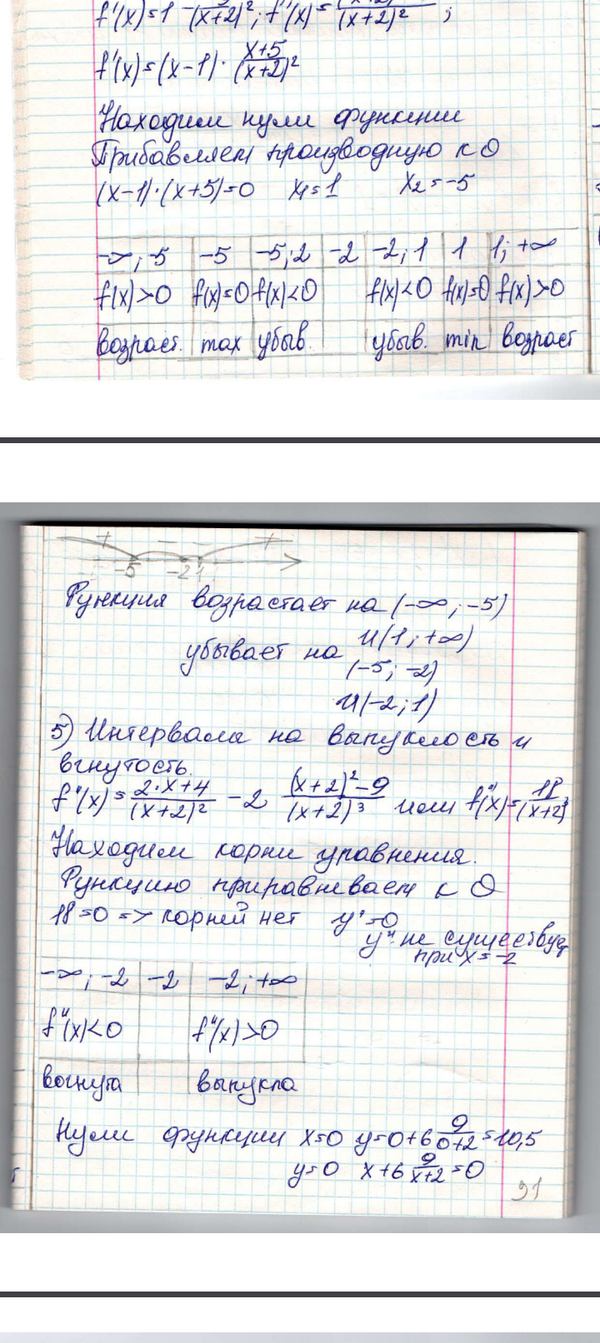 f'(x)=1-9/(x+2)²; f'(x)=
f'(x)=(x-1)·(x+5/(x+2)²
Находим нули функции
Прибавляем производную к 0
(x-1)·(x+5)=0 x₁=1 x₂=-5
-∞;-5 -5 -5;2 -2 -2;1 1 1;+∞
f(x)>0 f(x)=0 f(x)<0 f(x)<0 f(x)=0 f(x)>0
возраст. max убыв. убыв. min возраст
+ - - +
-5 -2 1
Функция возрастает на (-∞;-5)
и(1;+∞)
убывает на (-5;-2)
и(-2;1)
5) Интервала на выпуклость и
вгнутость.
f"(x)=2·x+4/(x+2)² -2 (x+2)²-9/(x+2)³ или f"(x)=18/(x+2)³
Находим корни уравнения.
Функцию приравниваем к 0
18=0 => корней нет y'=0
y" не существует
при x=-2
-∞;-2 -2 -2;+∞
f"(x)<0 f"(x)>0
вогнута выпукла
Нули функции x=0 y=0+6 9/0+2=10,5
y=0 x+6 9/x+2=0
91